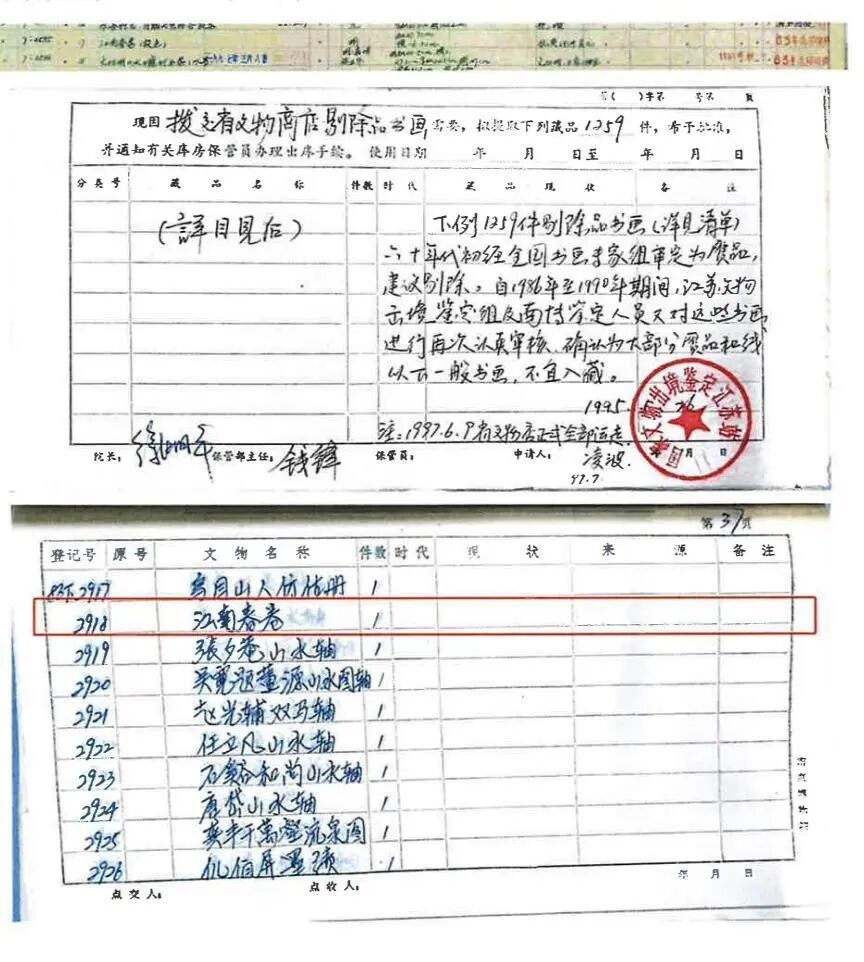 现因 拨交省文物商店剔除品书画 需要,拟提取下列藏品1259件,希予批准,
并通知有关库房保管员办理出库手续。 使用日期 年 月 日至 年 月 日
分类号 藏品名称 件数 时代 藏品现状 备注
(詳目見后)
下列1259件剔除品书画(详见清单)
六十年代初经全国书画专家组审定为赝品,
建议剔除。自1986年至1990年期间,江苏文物
出境鉴定组及南博鉴定人员又对这些书画
进行再次认真审核,确认为大部分赝品和线
以下一般书画,不宜入藏。
1995
注:1997.6.9省文物店正式全部运走
院长: 徐湖平 保管部主任: 钱锋 保管员: 申请人: 凌波
97.7
第37页
登记号 原号 文物名称 件数 时代 现状 来源 备注
2917 1
2918 江南春卷 1
2919 張夕菴山水轴 1
2920 吴寬题董源山水图轴 1
2921 赵光辅双马轴 1
2922 任立凡山水轴 1
2923 石谿和尚山水轴 1
2924 唐岱山水轴 1
2925 流泉图 1
2926 1
点交人: 点收人: 年 月 日